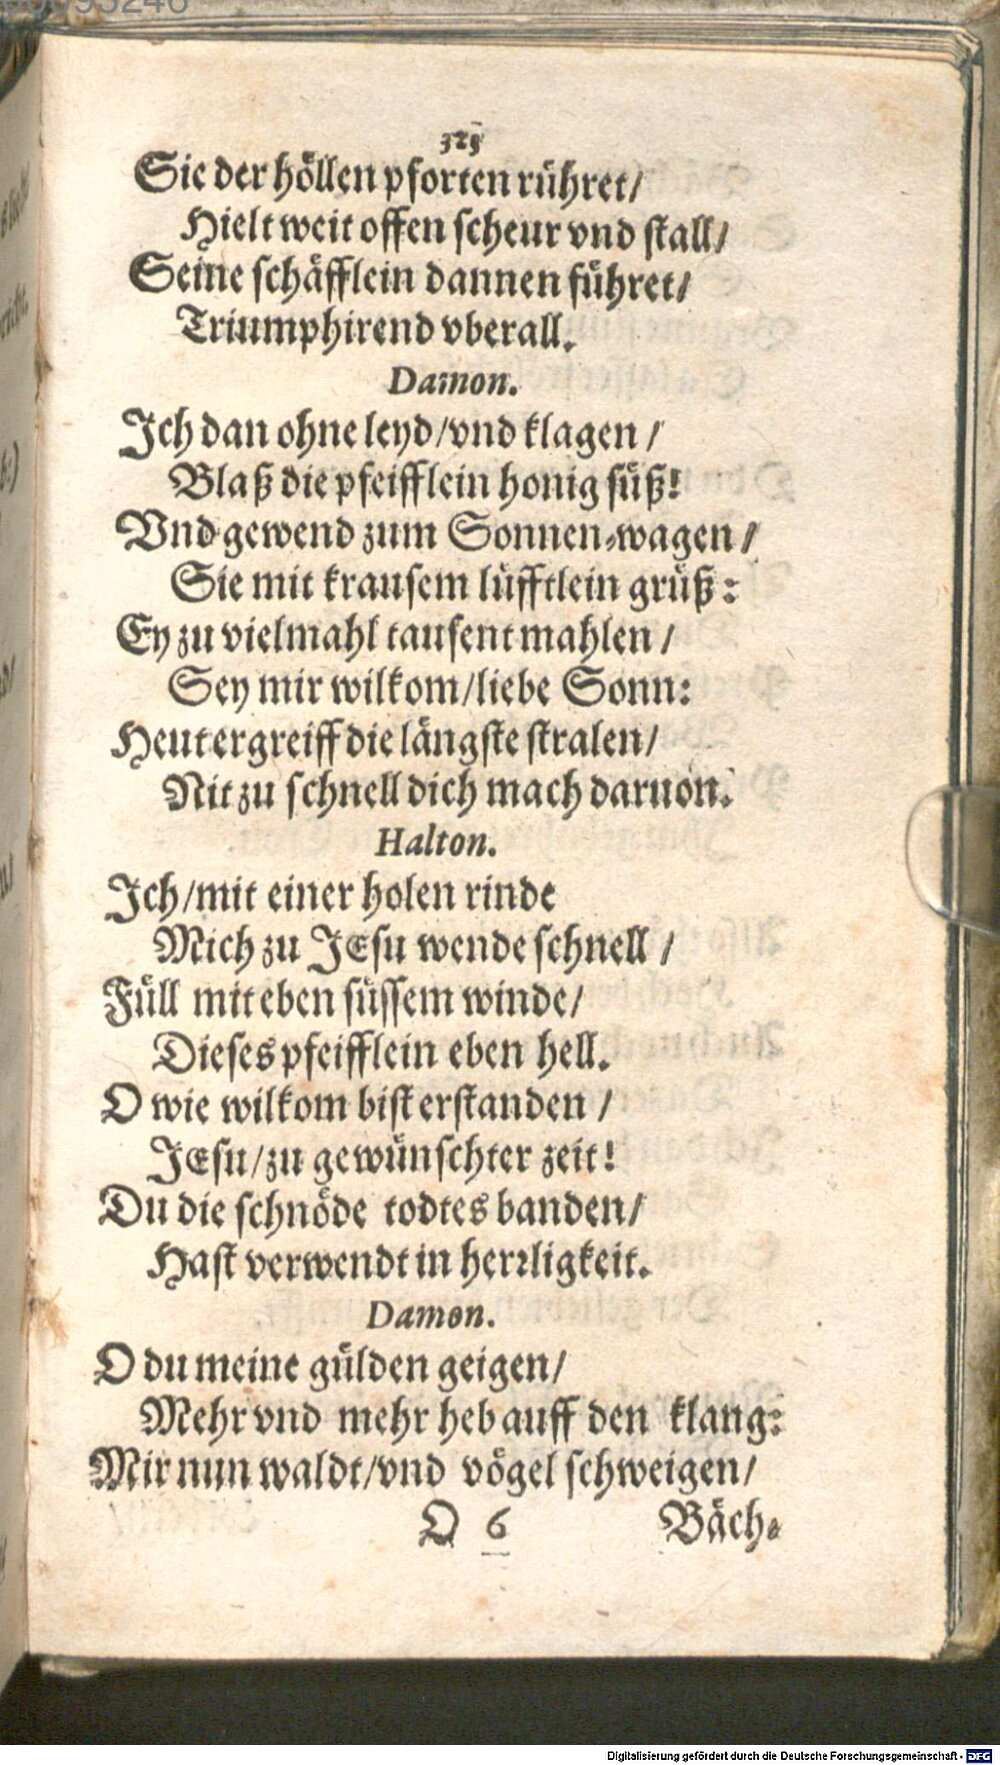 325
Sie der höllen pforten rühret/
Hielt weit offen scheur vnd stall/
Seine schäfflein dannen führet/
Triumphirend vberall.
Damon.
Ich dan ohne leyd/vnd klagen/
Blaß die pfeifflein honig süß!
Vnd gewend zum Sonnen-wagen/
Sie mit krausem lüfftlein grüß:
Ey zu vielmahl tausent mahlen/
Sey mir wilkom/liebe Sonn:
Heut ergreiff die längste stralen/
Nit zu schnell dich mach daruon.
Halton.
Ich/mit einer holen rinde
Mich zu JEsu wende schnell/
Füll mit eben süssem winde/
Dieses pfeifflein eben hell.
O wie wilkom bist erstanden/
JEsu/zu gewünschter zeit!
Du die schnöde todtes banden/
Hast verwendt in herrligkeit.
Damon.
O du meine gülden geigen/
Mehr vnd mehr heb auff den klang:
Mir nun waldt/vnd vögel schweigen/
O 6 Bäch-
Digitalisierung gefördert durch die Deutsche Forschungsgemeinschaft - DFG